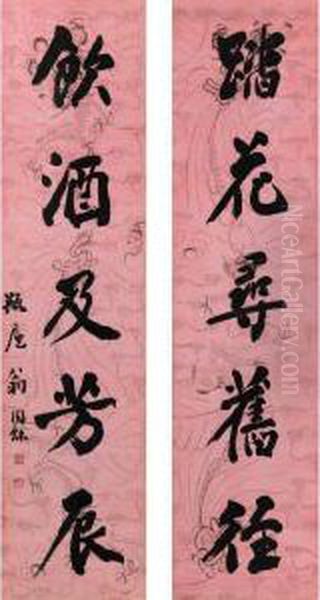 踏花尋舊徑
飲酒及芳辰
瓶廬翁同龢
NiceArtGallery.com